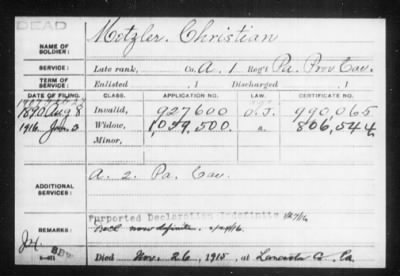 DEAD
NAME OF SOLDIER: Metzler, Christian
SERVICE: Late rank, Co. A. 1 Reg't Pa. Prov Cav.
TERM OF SERVICE: Enlisted , 1 Discharged , 1
DATE OF FILING. CLASS. APPLICATION NO. LAW. CERTIFICATE NO.
1890 Aug 8 Invalid, 927600 990,065
1916 Jan 3 Widow, 1,059,500. a. 806,544
Minor,
ADDITIONAL SERVICES: A. 2. Pa. Cav.
Purported Declaration Indefinite
REMARKS: Decl now definite.
Died Nov. 26, 1915, at Lancaster Co. Pa.